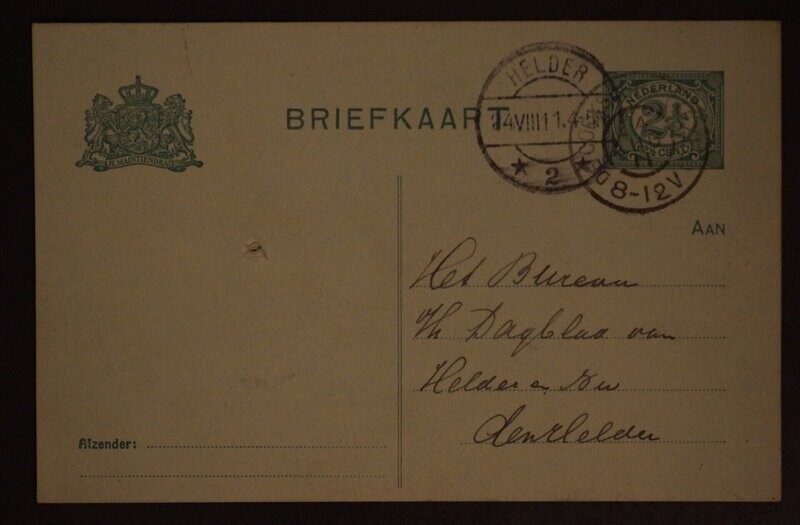 JE MAINTIENDRAI
BRIEFKAART
HELDER
4VIII11.4-5
2
NEDERLAND
2½
CENT
8-12V
AAN
Het Bureau
Dagblad van
Helder en
den Helder
Afzender: